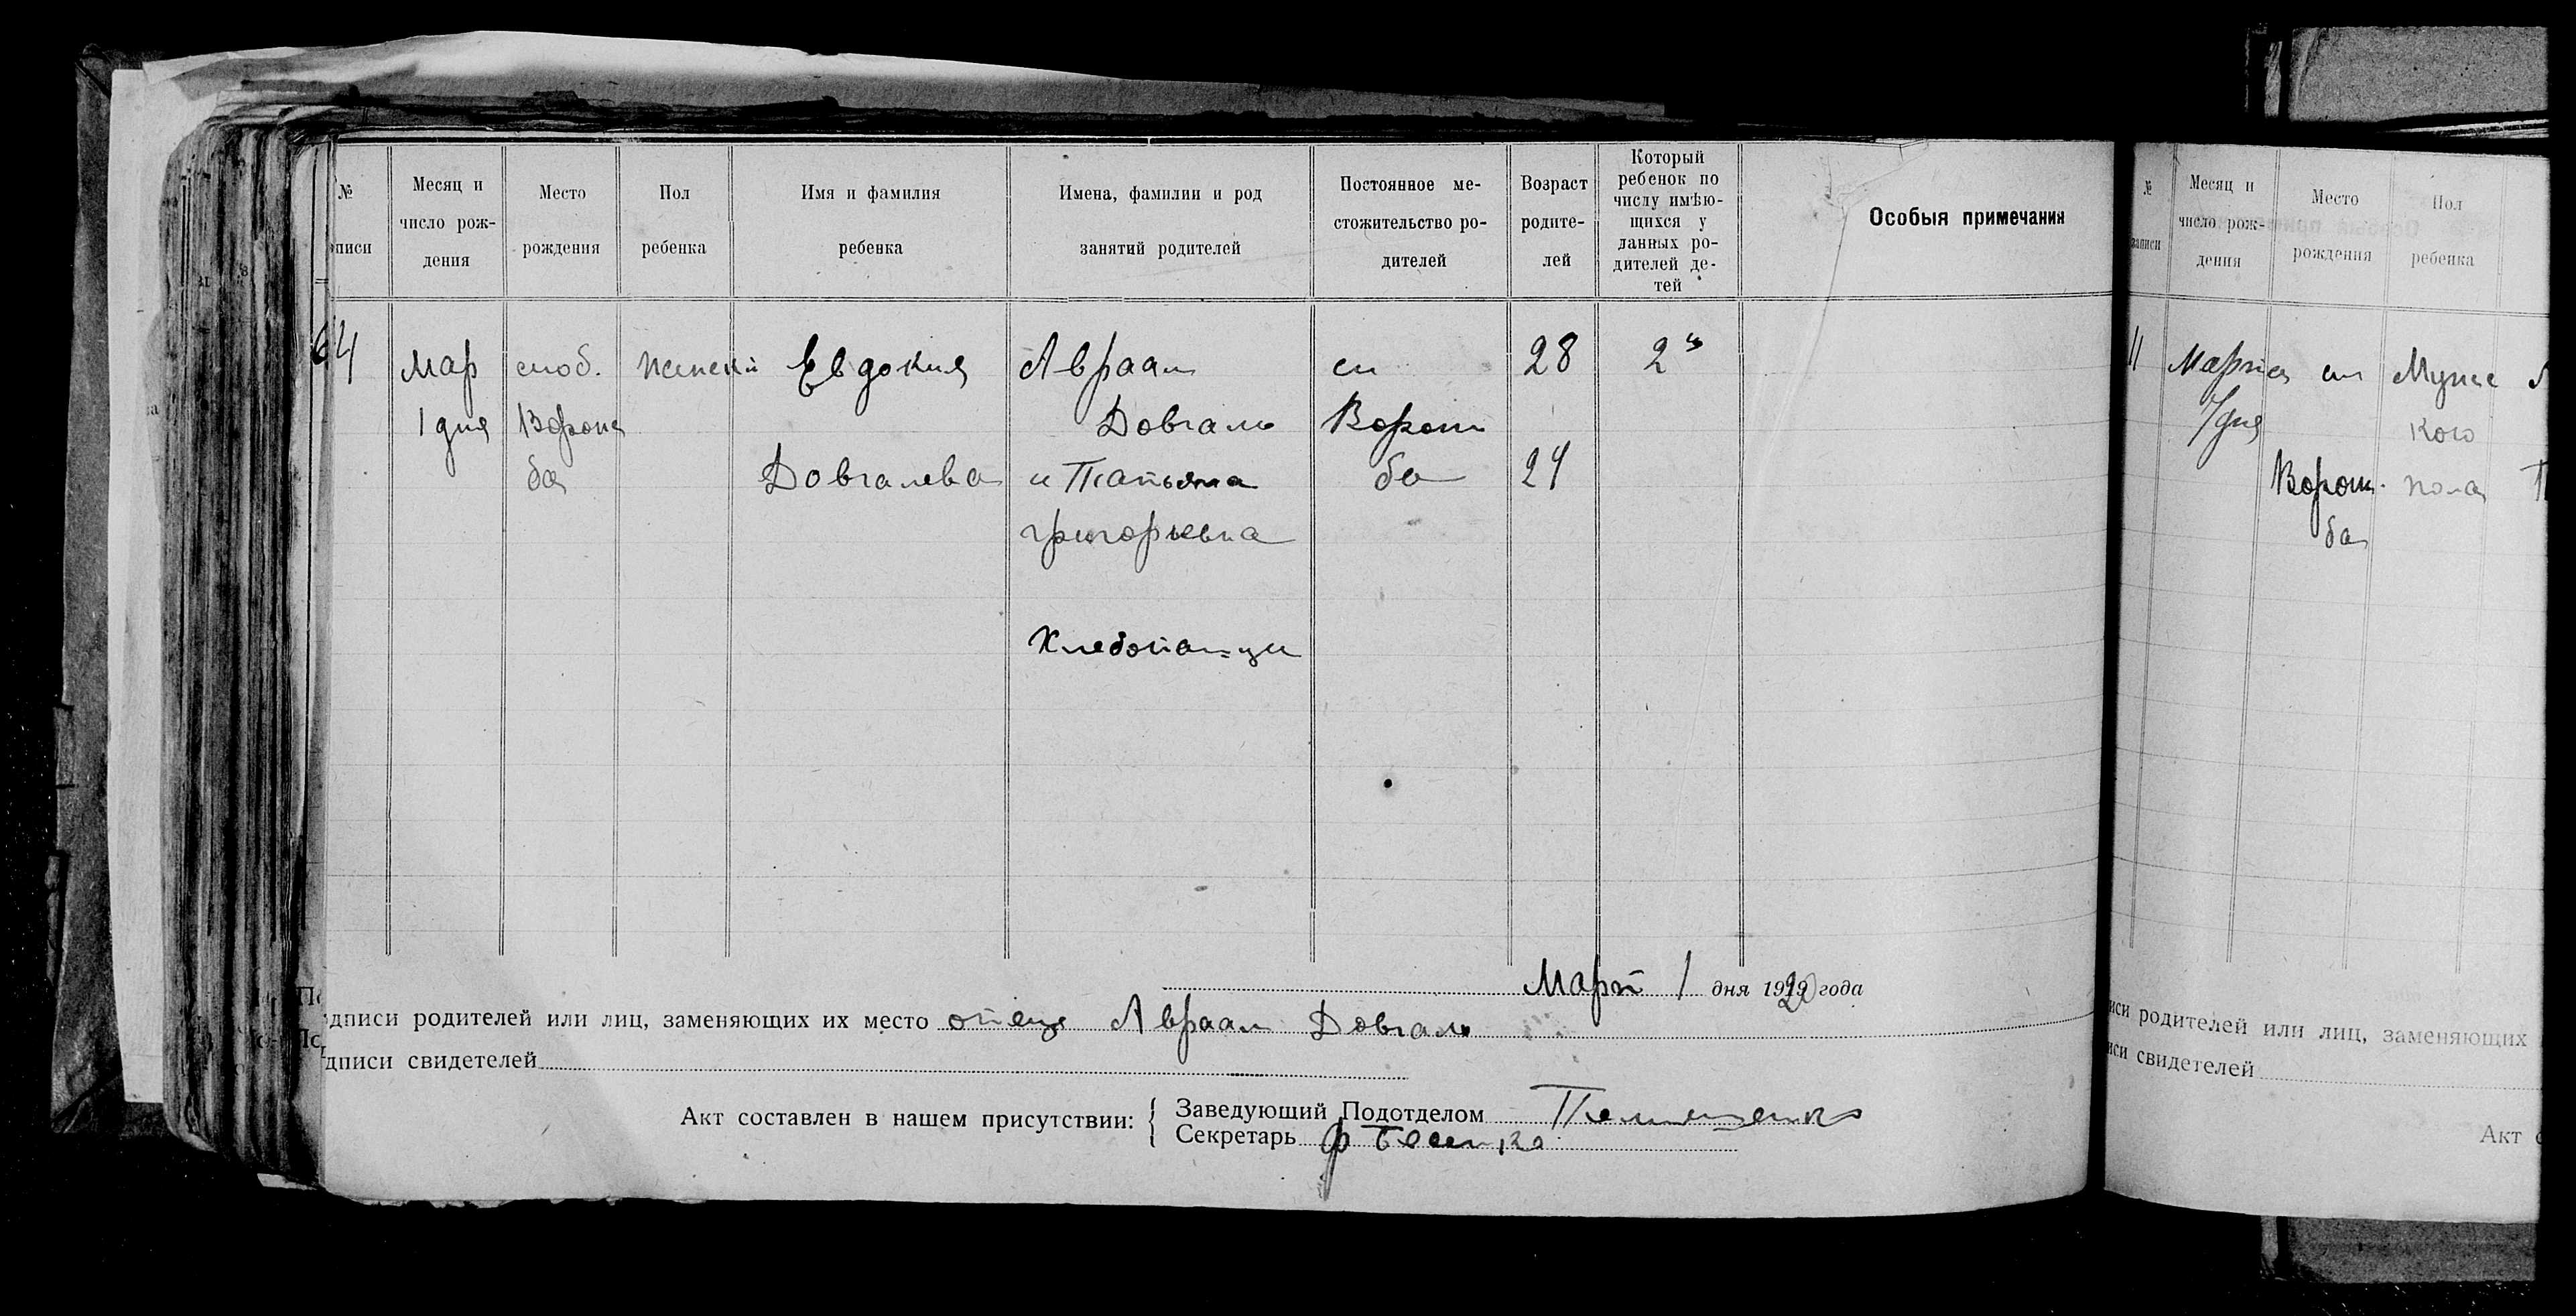 №
писи
Месяц и
число рож-
дения
Место
рождения
Пол
ребенка
Имя и фамилия
ребенка
Имена, фамилии и род
занятий родителей
Постоянное ме-
стожительство ро-
дителей
Возраст
родите-
лей
Который
ребенок по
числу имѣю-
щихся у
данных ро-
дителей де-
тей
Особыя примечания
64
Мар
1 дня
слоб.
Ворожба
женский
Евдокия
Довгалева
Авраам
Довгаль
и Татьяна
григорьевна
Хлебопашцы
сл
Ворож
ба
28
24
2й
Март 1 дня 1920 года
дписи родителей или лиц, заменяющих их место отец Авраам Довгаль
дписи свидетелей
Акт составлен в нашем присутствии:
Заведующий Подотделом
Секретарь
№
записи
Месяц и
число рож-
дения
Место
рождения
Пол
ребенка
11
Марта
7 дня
сл
Ворож-
ба
Мужс
кого
пола
иси родителей или лиц, заменяющих
иси свидетелей
Акт с